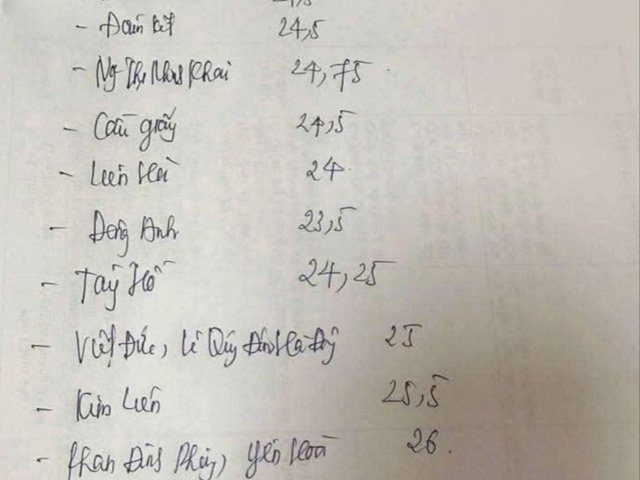 - Đoàn kết 24,5
- Ng Thị Minh Khai 24,75
- Cầu giấy 24,5
- Liên Hà 24
- Đông Anh 23,5
- Tây Hồ 24,25
- Việt Đức, Lê Quý Đôn Hà Đông 25
- Kim Liên 25,5
- Phan Đình Phùng, Yên Hoà 26.